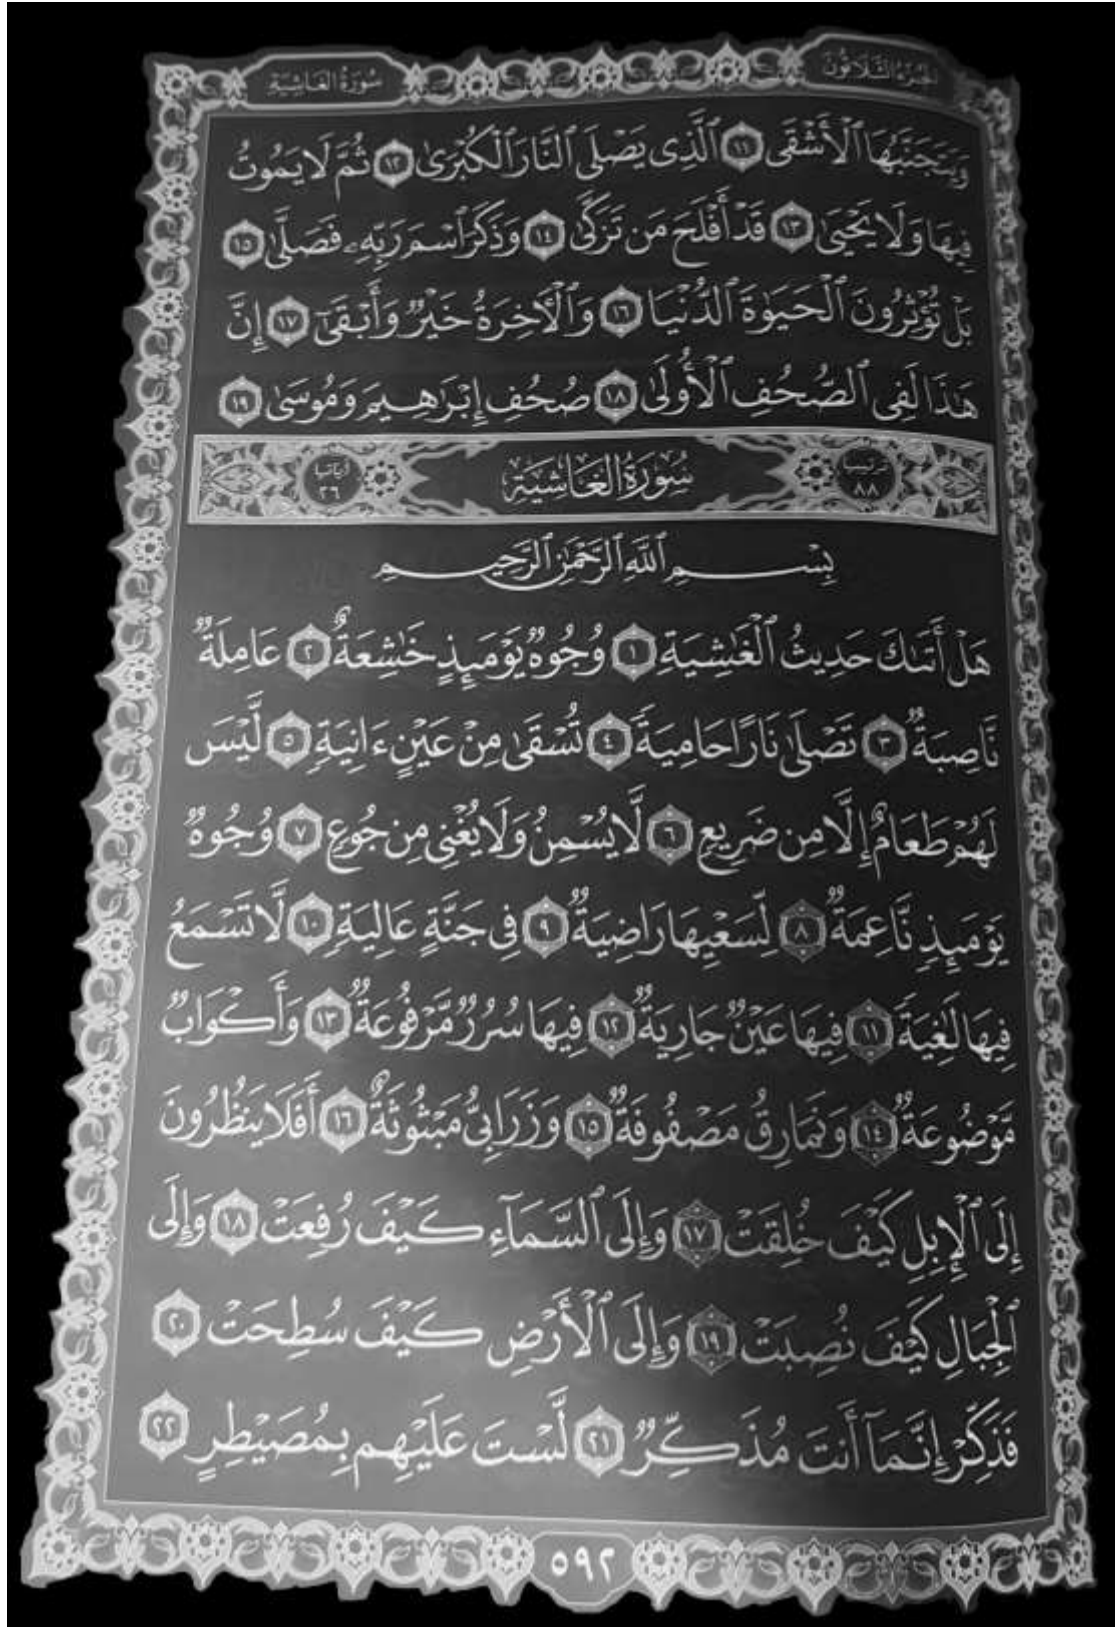 الجزء الثلاثون
سورة الغاشية
وَيَتَجَنَّبُهَا ٱلْأَشْقَى ١١ ٱلَّذِى يَصْلَى ٱلنَّارَ ٱلْكُبْرَىٰ ١٢ ثُمَّ لَا يَمُوتُ
فِيهَا وَلَا يَحْيَىٰ ١٣ قَدْ أَفْلَحَ مَن تَزَكَّىٰ ١٤ وَذَكَرَ ٱسْمَ رَبِّهِۦ فَصَلَّىٰ ١٥
بَلْ تُؤْثِرُونَ ٱلْحَيَوٰةَ ٱلدُّنْيَا ١٦ وَٱلْـَٔاخِرَةُ خَيْرٌ وَأَبْقَىٰٓ ١٧ إِنَّ
هَٰذَا لَفِى ٱلصُّحُفِ ٱلْأُولَىٰ ١٨ صُحُفِ إِبْرَٰهِيمَ وَمُوسَىٰ ١٩
ترتيبها ٨٨
سُورَةُ الغَاشِيَةِ
آياتها ٢٦
بِسْمِ ٱللَّهِ ٱلرَّحْمَٰنِ ٱلرَّحِيمِ
هَلْ أَتَىٰكَ حَدِيثُ ٱلْغَٰشِيَةِ ١ وُجُوهٌ يَوْمَئِذٍ خَٰشِعَةٌ ٢ عَامِلَةٌ
نَّاصِبَةٌ ٣ تَصْلَىٰ نَارًا حَامِيَةً ٤ تُسْقَىٰ مِنْ عَيْنٍ ءَانِيَةٍ ٥ لَّيْسَ
لَهُمْ طَعَامٌ إِلَّا مِن ضَرِيعٍ ٦ لَّا يُسْمِنُ وَلَا يُغْنِى مِن جُوعٍ ٧ وُجُوهٌ
يَوْمَئِذٍ نَّاعِمَةٌ ٨ لِّسَعْيِهَا رَاضِيَةٌ ٩ فِى جَنَّةٍ عَالِيَةٍ ١٠ لَّا تَسْمَعُ
فِيهَا لَٰغِيَةً ١١ فِيهَا عَيْنٌ جَارِيَةٌ ١٢ فِيهَا سُرُرٌ مَّرْفُوعَةٌ ١٣ وَأَكْوَابٌ
مَّوْضُوعَةٌ ١٤ وَنَمَارِقُ مَصْفُوفَةٌ ١٥ وَزَرَابِىُّ مَبْثُوثَةٌ ١٦ أَفَلَا يَنظُرُونَ
إِلَى ٱلْإِبِلِ كَيْفَ خُلِقَتْ ١٧ وَإِلَى ٱلسَّمَآءِ كَيْفَ رُفِعَتْ ١٨ وَإِلَى
ٱلْجِبَالِ كَيْفَ نُصِبَتْ ١٩ وَإِلَى ٱلْأَرْضِ كَيْفَ سُطِحَتْ ٢٠
فَذَكِّرْ إِنَّمَآ أَنتَ مُذَكِّرٌ ٢١ لَّسْتَ عَلَيْهِم بِمُصَيْطِرٍ ٢٢
٥٩٢